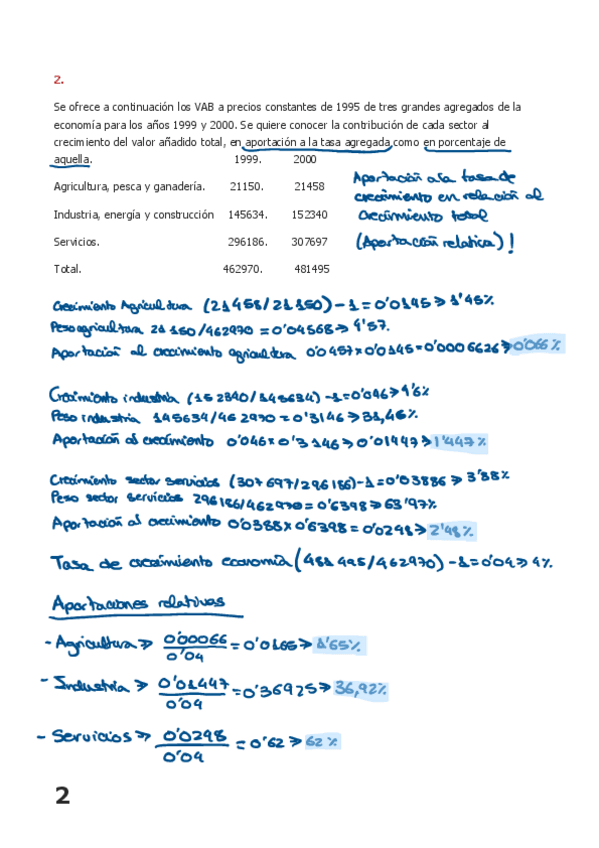 2.
Se ofrece a continuación los VAB a precios constantes de 1995 de tres grandes agregados de la
economía para los años 1999 y 2000. Se quiere conocer la contribución de cada sector al
crecimiento del valor añadido total, en aportación a la tasa agregada como en porcentaje de
aquella. 1999. 2000
Agricultura, pesca y ganadería. 21150. 21458
Industria, energía y construcción 145634. 152340
Servicios. 296186. 307697
Total. 462970. 481495
Aportación a la tasa de
crecimiento en relación al
crecimiento total
(Aportación relativa)!
Crecimiento Agricultura (21458/21150)-1=0'0145⇒1'45%
Peso agricultura 21150/462970=0'04568⇒4'57.
Aportación al crecimiento agricultura 0'0457×0'0145=0'0006626⇒0'066%
Crecimiento industria (152340/145634)-1=0'046⇒4'6%
Peso industria 145634/462970=0'3146⇒31,46%
Aportación al crecimiento 0'046×0'3146⇒0'01447⇒1'447%
Crecimiento sector servicios (307697/296186)-1=0'03886⇒3'88%
Peso sector servicios 296186/462970=0'6398⇒63'97%
Aportación al crecimiento 0'0388×0'6398=0'0248⇒2'48%
Tasa de crecimiento economía (481495/462970)-1=0'04⇒4%
Aportaciones relativas
- Agricultura ⇒ 0'00066/0'04=0'0165⇒1'65%
- Industria ⇒ 0'01447/0'04=0'36925⇒36,92%
- Servicios ⇒ 0'0248/0'04=0'62⇒62%
2